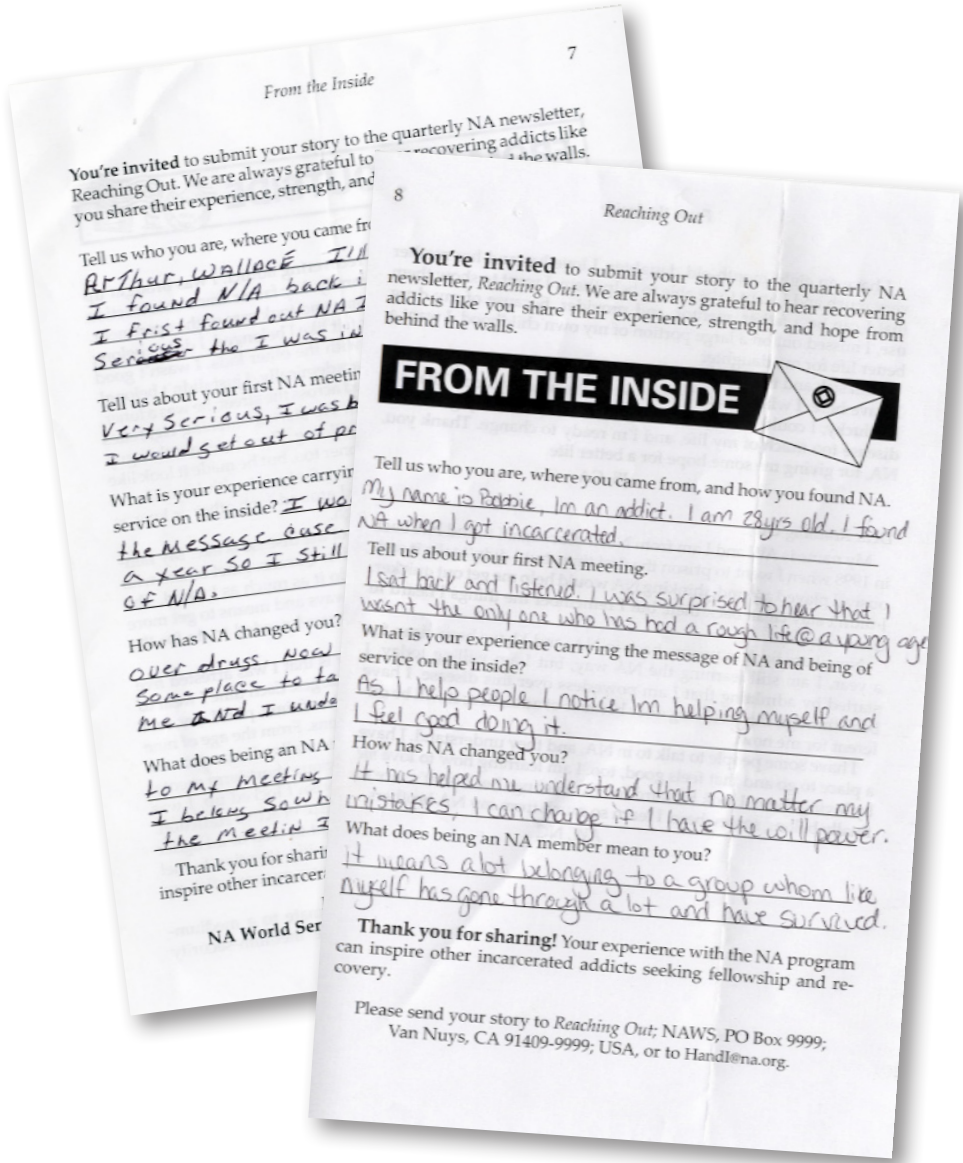 7
From the Inside
You're invited to submit your story to the quarterly NA newsletter,
Reaching Out. We are always grateful to recovering addicts like
you share their experience, strength, and the walls.
Tell us who you are, where you came
ArThur, WALLACE
I found N/A back
I frist found out NA
Serious the I was in
Tell us about your first NA
Very Serious, I was
I would get out of
What is your experience
service on the inside? I
the Message cause
a year So I still
of N/A.
How has NA changed you?
over drugs Now
Some place to
me ANd I
What does being an NA
to my meeting
I belong
the Meetin I
Thank you for
inspire other
NA World
8
Reaching Out
You're invited to submit your story to the quarterly NA
newsletter, Reaching Out. We are always grateful to hear recovering
addicts like you share their experience, strength, and hope from
behind the walls.
FROM THE INSIDE
Tell us who you are, where you came from, and how you found NA.
My name is Bobbie, Im an addict. I am 28yrs old. I found
NA when I got incarcerated.
Tell us about your first NA meeting.
I sat back and listened. I was surprised to hear that I
wasnt the only one who has had a rough life @ a young age
What is your experience carrying the message of NA and being of
service on the inside?
As I help people I notice Im helping myself and
I feel good doing it.
How has NA changed you?
it has helped me understand that no matter my
mistakes, I can change if I have the will power.
What does being an NA member mean to you?
it means a lot belonging to a group whom like
myself has gone through a lot and have survived.
Thank you for sharing! Your experience with the NA program
can inspire other incarcerated addicts seeking fellowship and re-
covery.
Please send your story to Reaching Out; NAWS, PO Box 9999;
Van Nuys, CA 91409-9999; USA, or to HandI@na.org.